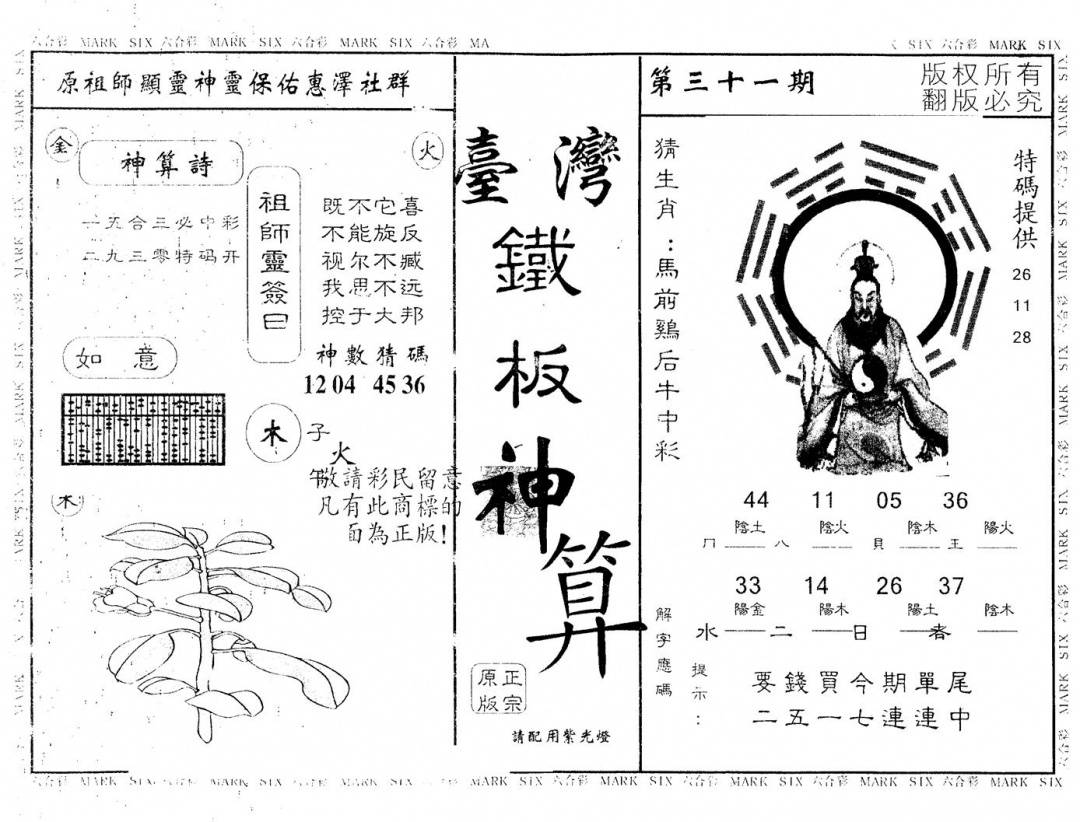 六合彩 MARK SIX 六合彩 MARK SIX 六合彩 MARK SIX 六合彩 MA
SIX 六合彩 MARK SIX
原祖師顯靈神靈保佑惠澤社群
金
神算詩
火
一五合三必中彩
二九三零特码开
祖師靈簽曰
既不它喜
不能旋反
视尔不臧
我思不远
控于大邦
神數猜碼
12 04 45 36
如意
木
子
火
午敬請彩民留意
凡有此商標的
面為正版!
木
臺灣
鐵
板
神
算
正宗
原版
請配用紫光燈
第三十一期
版权所有
翻版必究
猜生肖：馬前鷄后牛中彩
特碼提供
26
11
28
44 11 05 36
陰土 陰火 陰木 陽火
冂 八 貝 王
33 14 26 37
陽金 陽木 陽土 陰木
水 二 日 春
解字應碼
提示：
要錢買今期單尾
二五一七連連中
MARK SIX 六合彩 MARK SIX 六合彩 MARK SIX 六合彩 MARK SIX 六合彩 MARK SIX 六合彩 MARK SIX 六合彩 MARK SIX 六合彩 MARK SIX